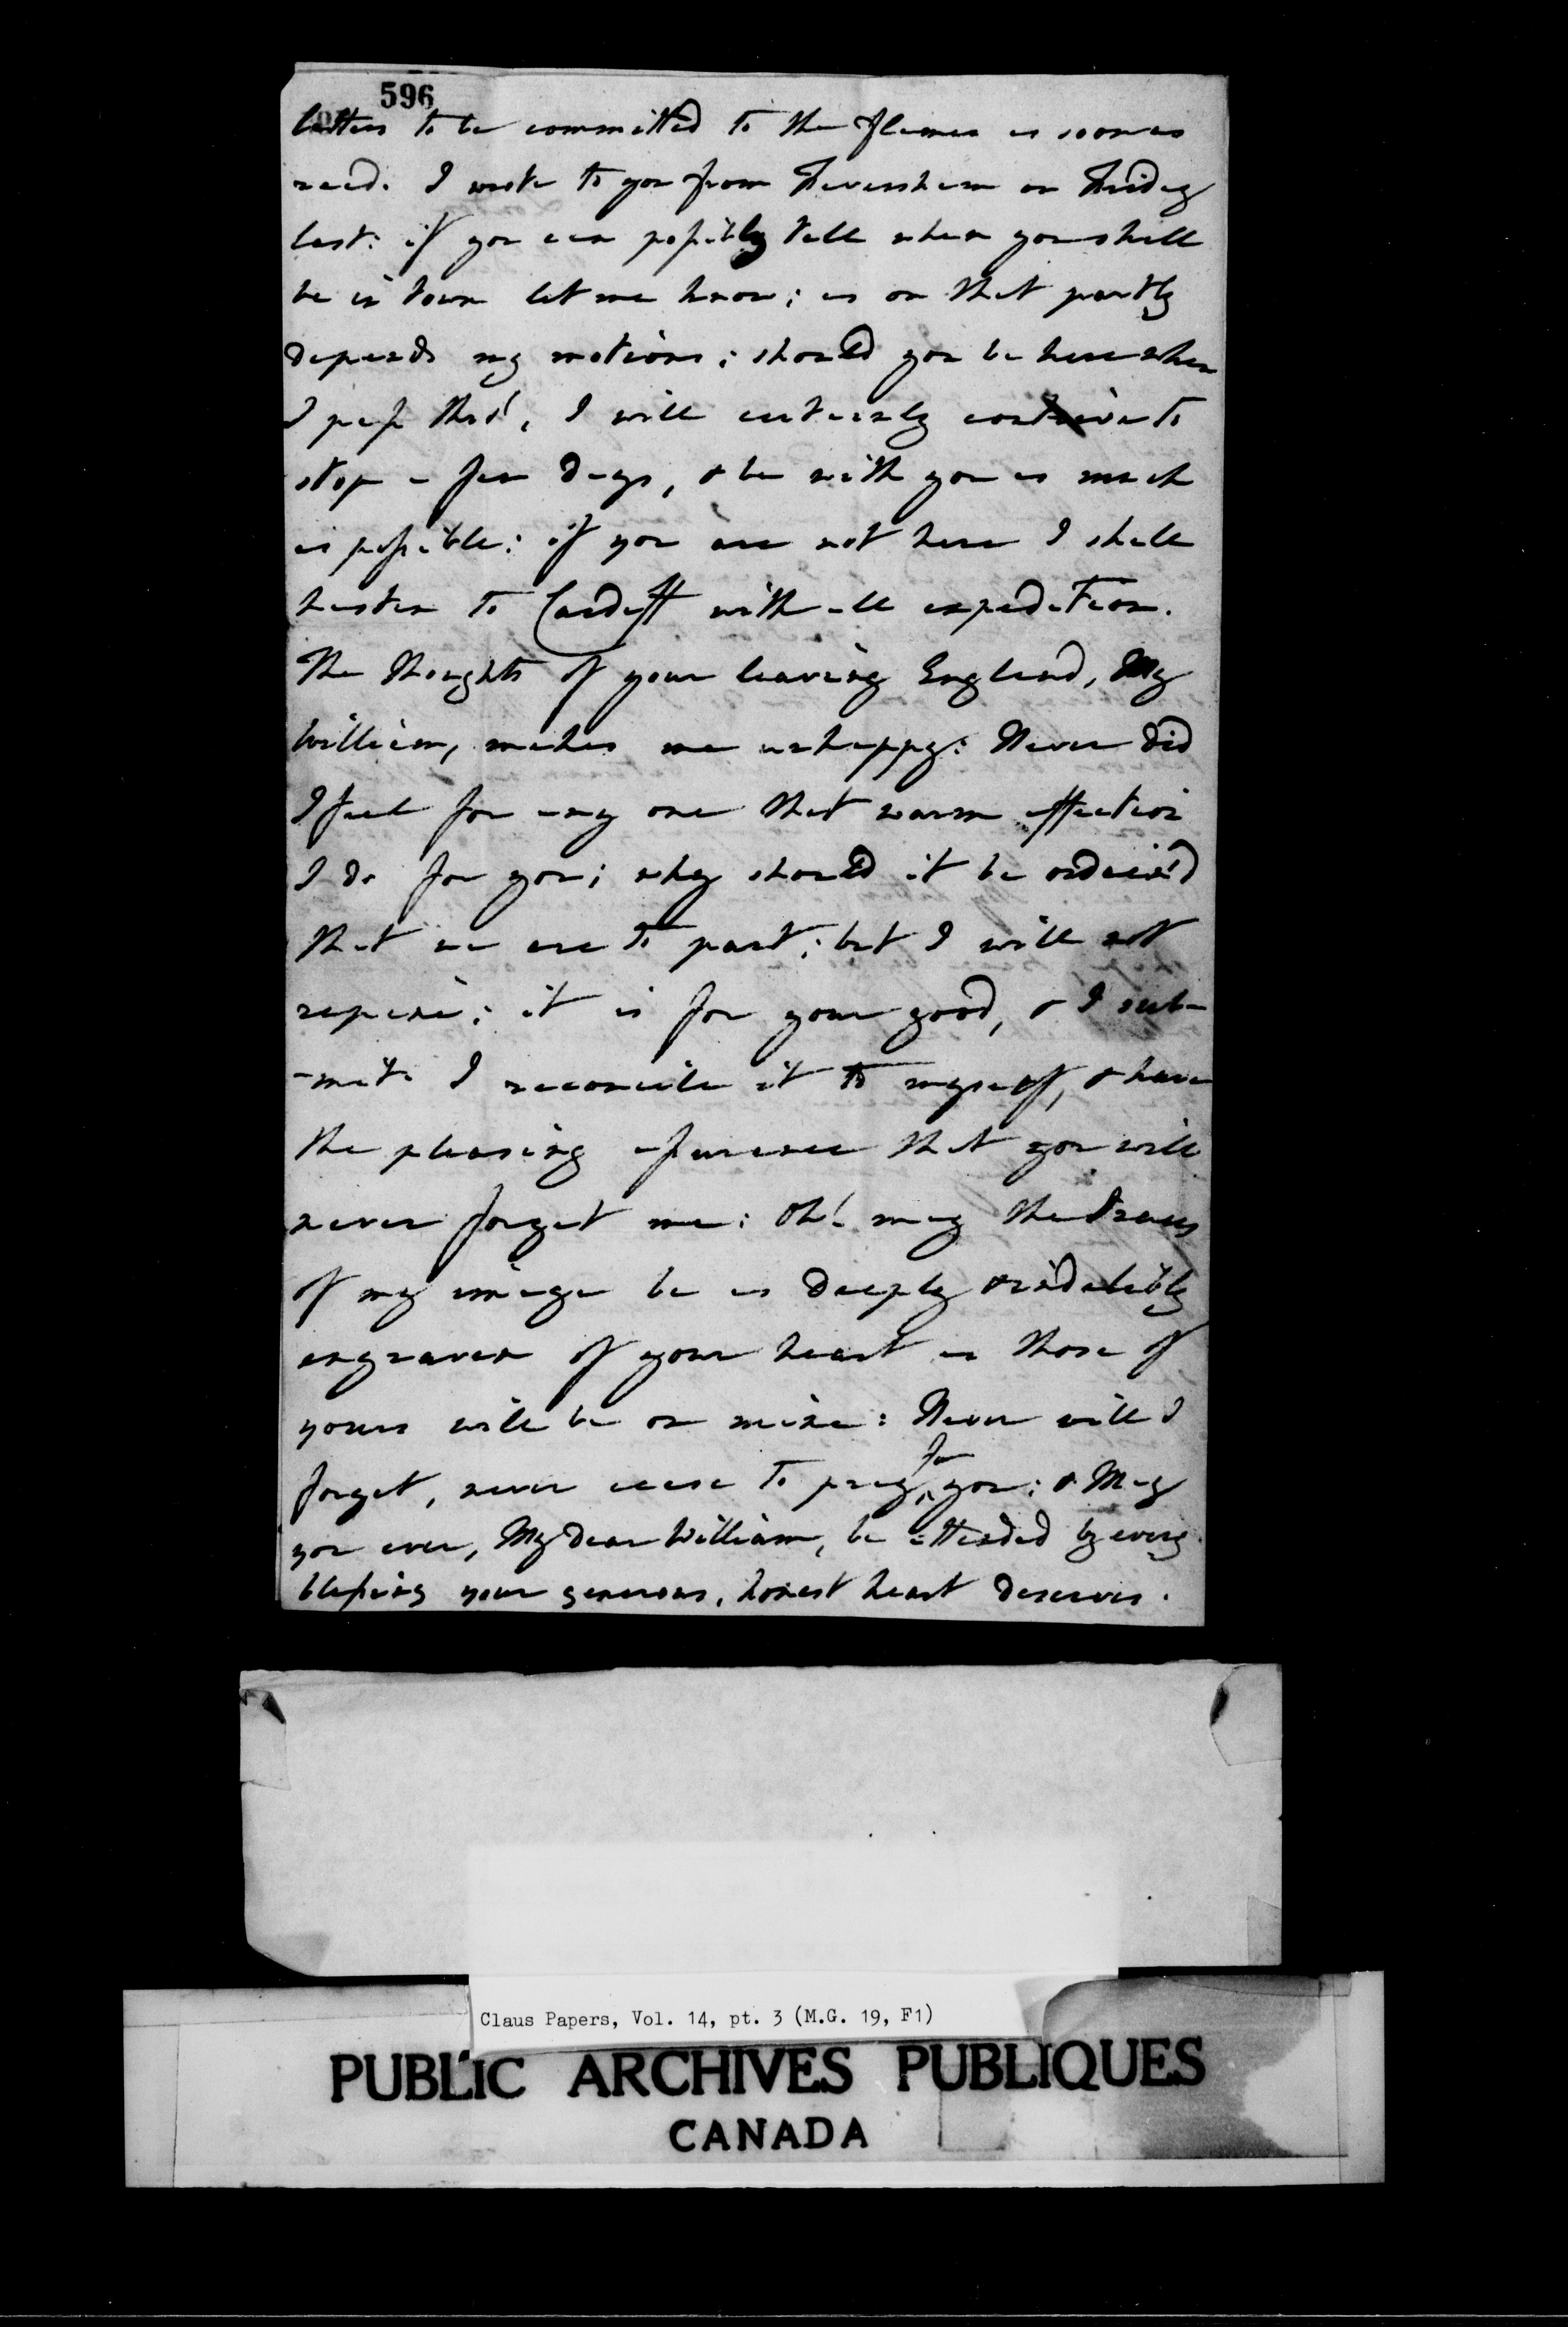 596
letters to be committed to the flames as soon as
read. I wrote to you from Feversham on Friday
last: if you can possibly tell when you shall
be in town let me know; as on that partly
depends my motions; should you be here when
I pass thro', I will certainly contrive to
stop a few days, & be with you as much
as possible: if you are not here I shall
hasten to Cardiff with all expedition.
The thoughts of your leaving England, My
William, makes me unhappy: Never did
I feel for any one that warm affection
I do for you; why should it be ordain'd
that we are to part; but I will not
repine; it is for your good, & I sub-
-mit. I reconcile it to myself, & have
the pleasing assurance that you will
never forget me: Oh! may the traces
of my image be as deeply & indelibly
engraven of your heart as those of
yours will be on mine: Never will I
forget, never cease to pray for you; & May
you ever, My dear William, be attended by every
blessing your generous, honest heart deserves.
Claus Papers, Vol. 14, pt. 3 (M.G. 19, F1)
PUBLIC ARCHIVES PUBLIQUES
CANADA